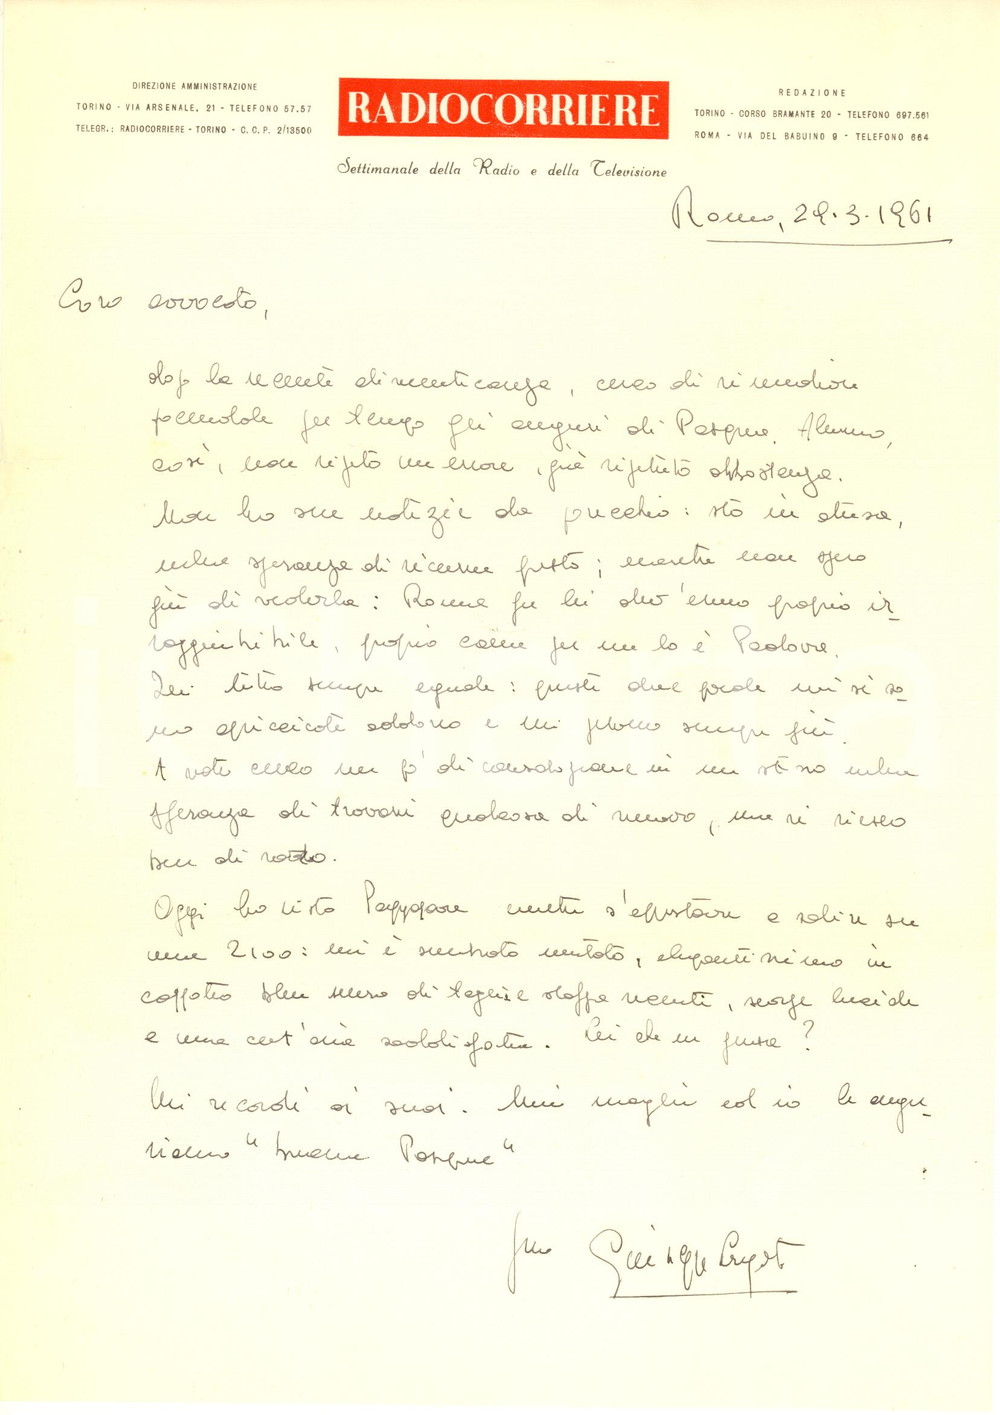 DIREZIONE AMMINISTRAZIONE
TORINO - VIA ARSENALE, 21 - TELEFONO 57.57
TELEGR.: RADIOCORRIERE - TORINO - C. C. P. 2/13500
RADIOCORRIERE
Settimanale della Radio e della Televisione
REDAZIONE
TORINO - CORSO BRAMANTE 20 - TELEFONO 697.561
ROMA - VIA DEL BABUINO 9 - TELEFONO 664
Roma, 29.3.1961
Caro avvocato,
dopo la recente dimenticanza, cerco di rimediare
facendole per tempo gli auguri di Pasqua. Almeno,
così, non ripeto un errore, già ripetuto abbastanza.
Non ho sue notizie da parecchio: sto in attesa,
nella speranza di riceverne presto; mentre non spero
più di vederla: Roma per lei dev'essere proprio ir-
raggiungibile, proprio come per me lo è Padova.
Qui tutto sempre eguale: queste due parole mi si so-
no appiccicate addosso e mi pesano sempre più.
A volte cerco un po' di consolazione in me stesso nella
speranza di trovarvi qualcosa di nuovo, ma vi riesco
ben di rado.
Oggi ho visto mentre s'apprestava a salire su
una 2100: mi è sembrato mutato, elegantissimo in
cappotto blu scuro di taglio e stoffa recenti, scarpe lucide
e una cert'aria soddisfatta. Lei che ne pensa?
Mi ricordi ai suoi. Mia moglie ed io le augu-
riamo "buona Pasqua"
Suo Giuseppe